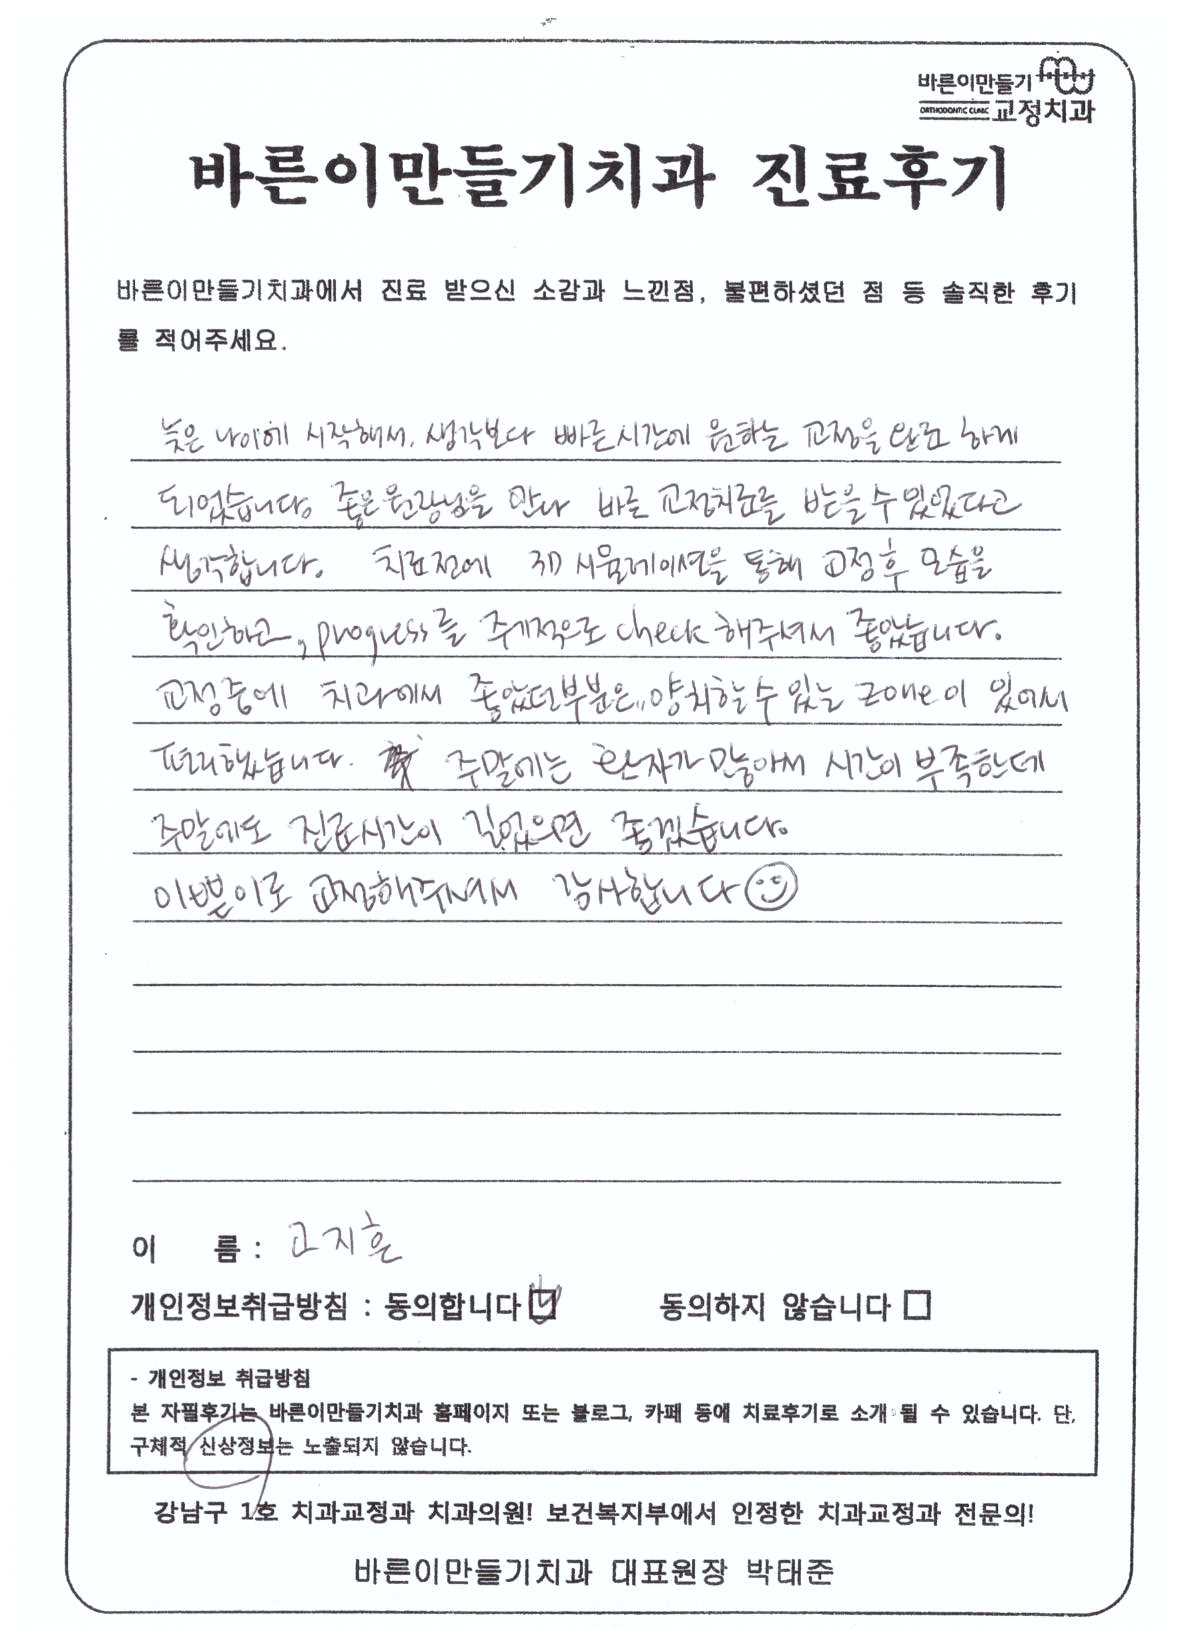 바른이만들기
ORTHODONTIC CLINIC 교정치과
바른이만들기치과 진료후기
바른이만들기치과에서 진료 받으신 소감과 느낀점, 불편하셨던 점 등 솔직한 후기
를 적어주세요.
늦은 나이에 시작해서, 생각보다 빠른시간에 원하는 교정을 완료 하게
되었습니다. 좋은 원장님을 만나 바른 교정치료를 받을 수 있었다고
생각합니다. 치료전에 3D 시뮬레이션을 통해 교정 후 모습을
확인하고, progress를 주기적으로 check 해주셔서 좋았습니다.
교정중에 치과에서 좋았던 부분은, 양치할 수 있는 zone이 있어서
편리했습니다. 주말에는 환자가 많아서 시간이 부족한데
주말에도 진료시간이 길었으면 좋겠습니다.
이쁜이로 교정해주셔서 감사합니다
이 름 : 고지훈
개인정보취급방침 : 동의합니다 동의하지 않습니다
- 개인정보 취급방침
본 자필후기는 바른이만들기치과 홈페이지 또는 블로그, 카페 등에 치료후기로 소개 될 수 있습니다. 단,
구체적 신상정보는 노출되지 않습니다.
강남구 1호 치과교정과 치과의원! 보건복지부에서 인정한 치과교정과 전문의!
바른이만들기치과 대표원장 박태준